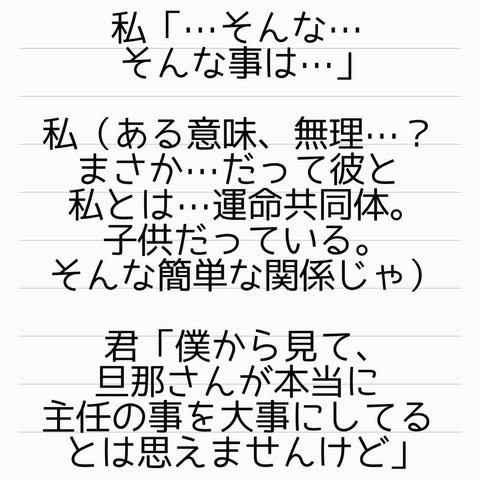 私「…そんな…
そんな事は…」
私（ある意味、無理…？
まさか…だって彼と
私とは…運命共同体。
子供だっている。
そんな簡単な関係じゃ）
君「僕から見て、
旦那さんが本当に
主任の事を大事にしてる
とは思えませんけど」